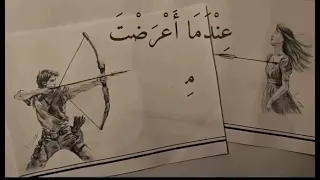 عِنْدَمَا أَعْرَضْتَ
مِ